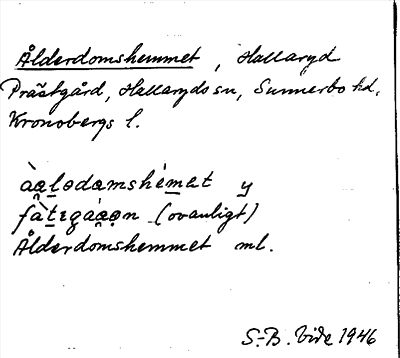 Ålderdomshemmet, Hallaryd
Prästgård, Hallaryds sn, Sunnerbo hd,
Kronobergs l.
y
(ovanligt)
Ålderdomshemmet ml.
S.-B. Vide 1946